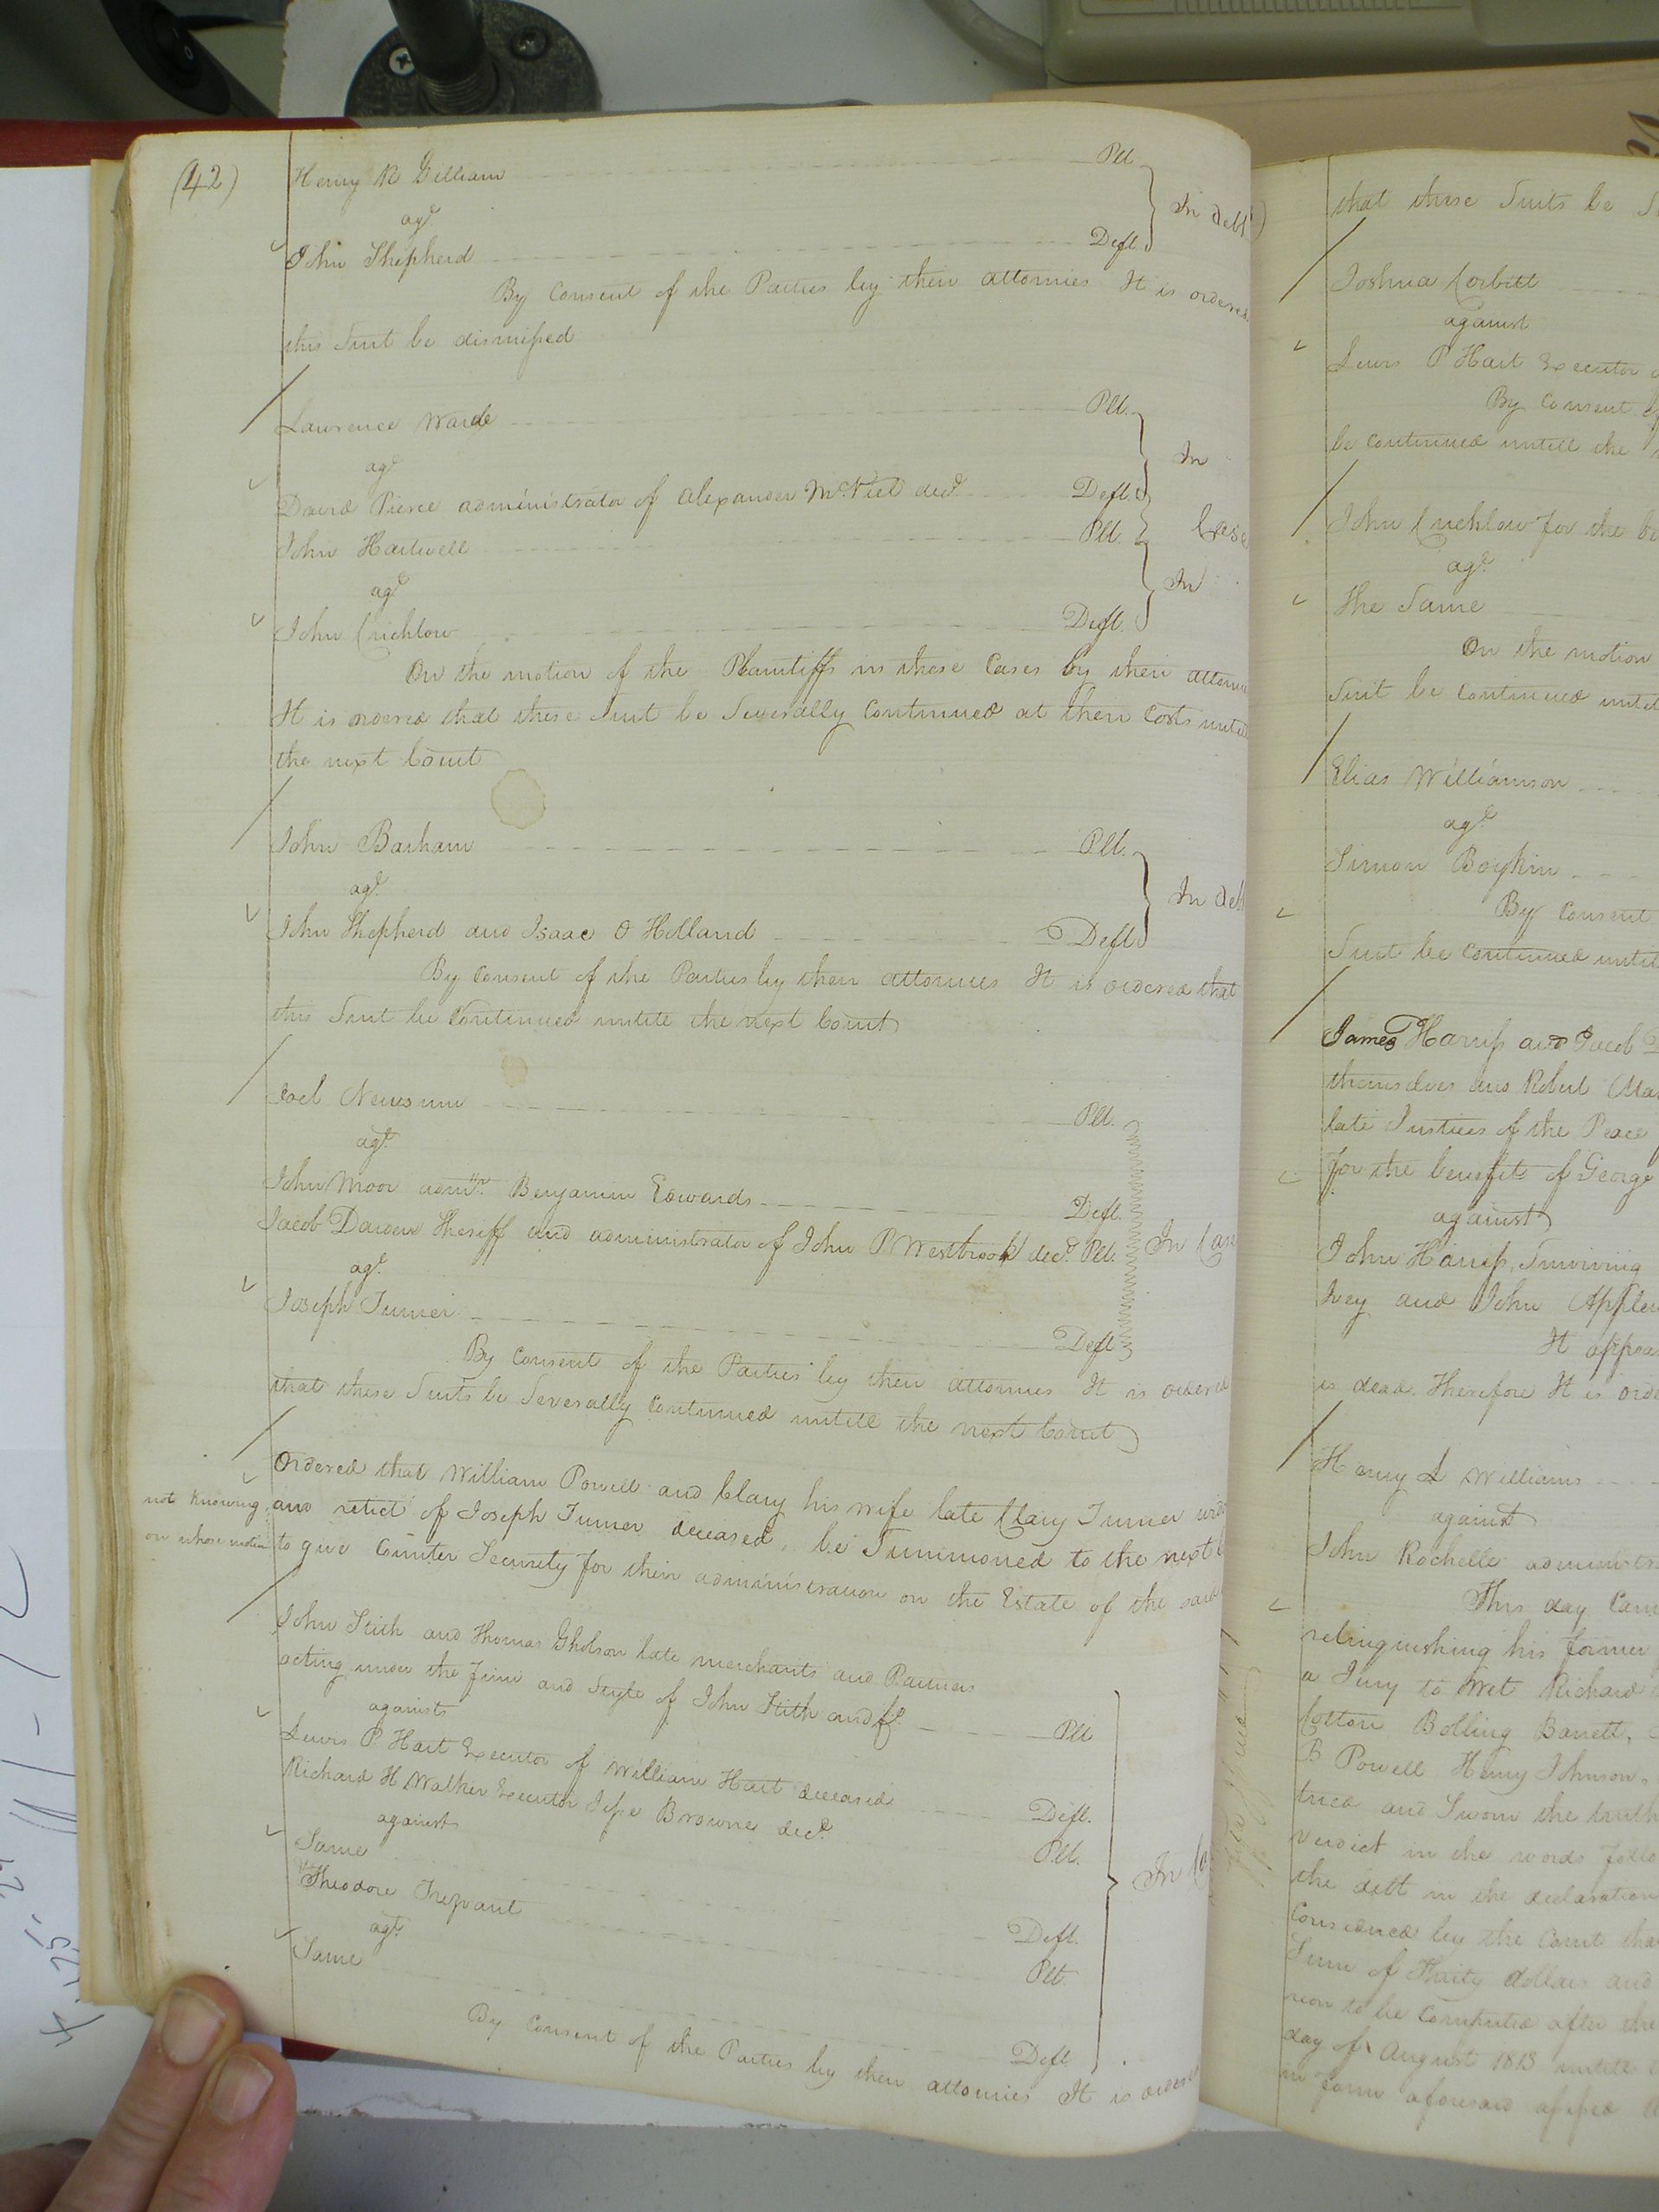 (42)
Henry R Gilliam Plt
agt
John Shepherd Deft
In debt
By Consent of the Parties by their attornies It is ordered
this Suit be dismissed
Lawrence Warde Plt.
agt
David Pierce administrator of Alexander McNiel decd. Deft
In
John Hartwell Plt.
Case
agt
In
John Crichlow Deft.
On the motion of the Plaintiffs in these Cases by their attornies
It is ordered that these Suit be Severally Continued at their Costs untill
the next Court
John Barham Plt.
agt.
John Shepherd and Isaac O Holland Deft
In debt
By Consent of the Parties by their attornies It is ordered that
this Suit be Continued untill the next Court
Joel Newsum Plt.
agt.
John Moor admr. Benjamin Edwards Deft.
Jacob Darden Sheriff and administrator of John P Westbrook decd. Plt.
In Cas
agt.
Joseph Turner Deft
By Consent of the Parties by their attornies It is ordered
that these Suits be Severally Continued untill the next Court
Ordered that William Powell and Clary his wife late Clary Turner wid
not knowing and relict of Joseph Turner deceased, be Summoned to the next C
on whose motion to give Counter Security for their administration on the Estate of the said
John Stith and Thomas Gholson late merchants and Partners
acting under the Firm and Style of John Stith and Co. Plt
against
Lewis P Hart Executor of William Hart deceased Deft.
Richard H Walker Executor Jesse Browne decd. Plt.
against
Same Deft.
In Ca
Theodore Trezvant Plt.
agt.
Same Deft
By Consent of the Parties by their attornies It is ordered
that these Suits be S
Joshua Corbitt
against
Lewis P Hart Executor o
By Consent of
be Continued untill the
John Crichlow for the be
agt.
The Same
On the motion
Suit be Continued untill
Elias Williamson
agt
Simon Boykin
By Consent
Suit be Continued untill
James Harriss and Jacob
themselves and Robert Ma
late Justices of the Peace
for the benefit of George
against
John Harriss, Surviving
Ivey and John Applew
It appea
is dead. Therefore It is orde
Henry L Williams
against
John Rochelle administr
This day Cam
relinquishing his former
a Jury to Wit Richard
Cotton Bolling Barrett,
B Powell Henry Johnson,
tried and Sworn the truth
verdict in the words follo
the debt in the declaration
Considered by the Court tha
Sum of Thirty dollars and
reon to be Computed after the
day of August 1813 untill
in form aforesaid assessed